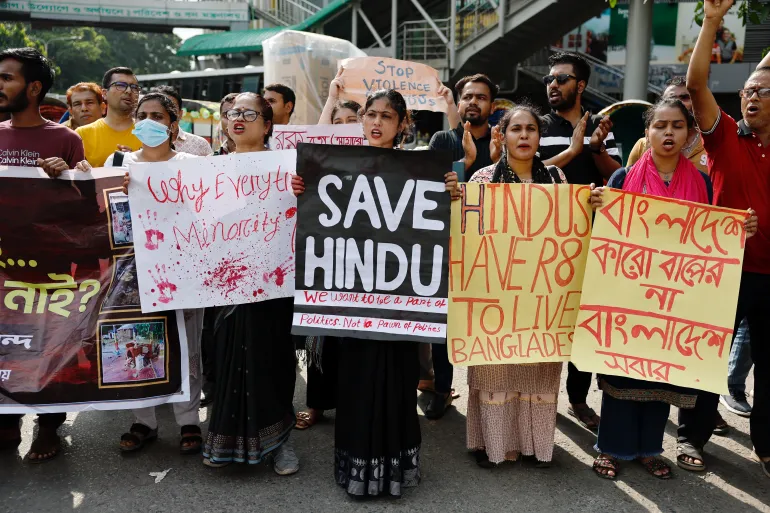 STOP
VIOLENCE
Calvin Klein
Why Everyth
Minority
SAVE
HINDU
We want to be a part of
Politics. Not a Pawn of Politics
HINDUS
HAVE R8
TO LIVE
BANGLADES
বাংলাদেশ
কারো বাপের
না
বাংলাদেশ
সবার
নাই?